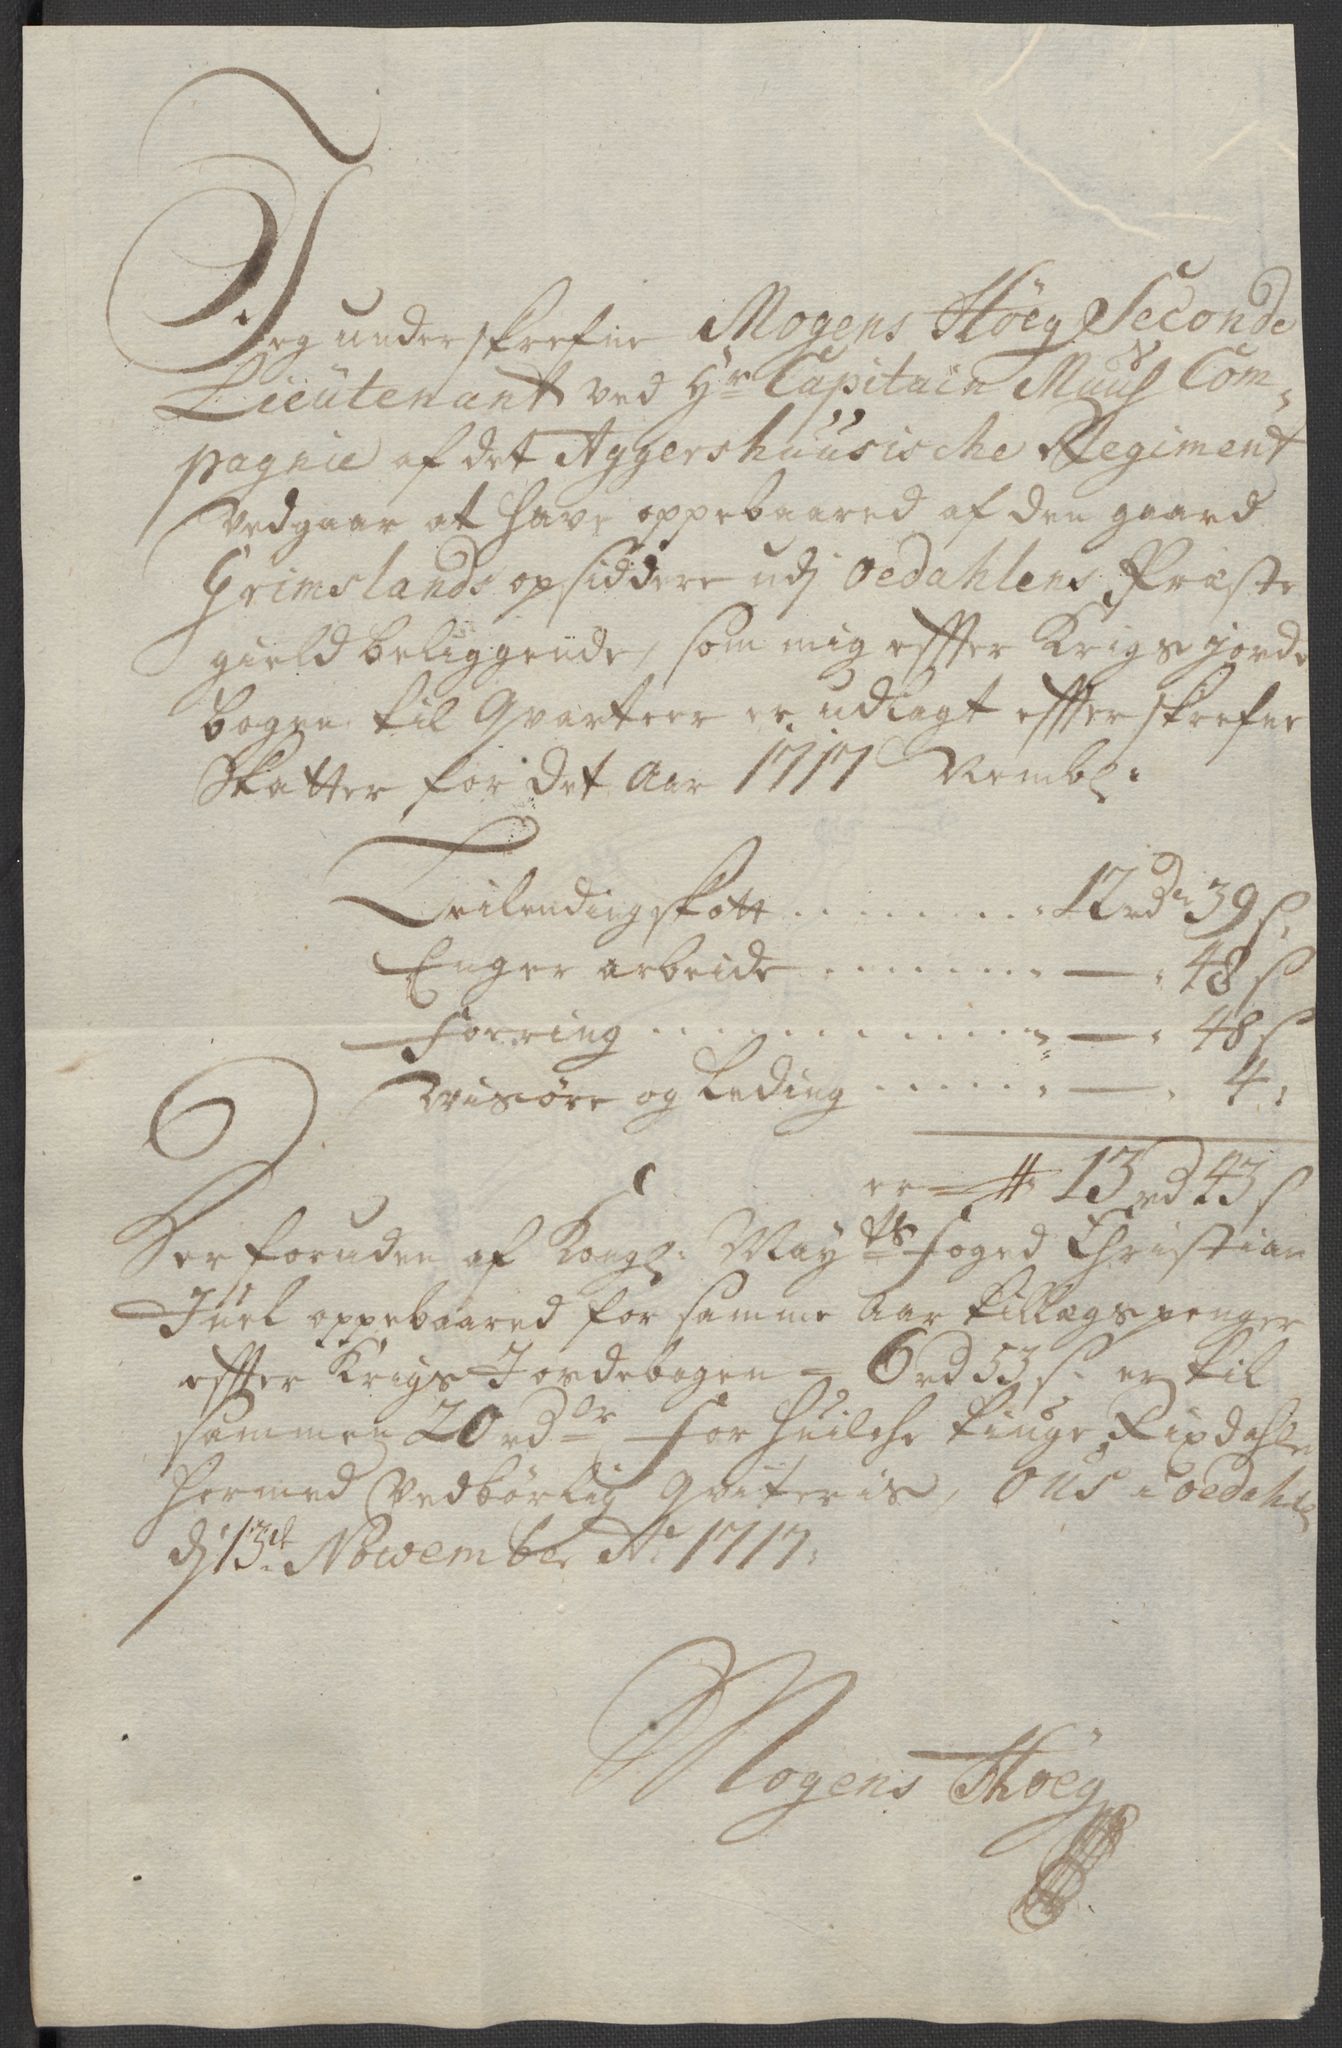 Jeg underskrefne Mogens Höeg Seconde
Lieütenant ved Hr Capitain Muus Com-
pagnie af det Aggershuusische Regiment
Vedgaar at have oppebaared af den gaard
Grimslands opsiddere udj Oedahlens Præste
gield beliggende, som mig effter Krigs jorde
bogen til Qvarteer er udlagt effterskrefne
Skatter for det Aar 1717 Nembl:
Leilendingskatt . . . . . . . . . 12 rd: 39 s.
Enger arbeide . . . . . . . — 48 s
Forring . . . . . . . . . . . — 48 s
Wisøre og Leding . . . . . . — 4:
er — 13 rd 43 s
Herforuden af Kongl: Mayts Foged Christian
Juel oppebaared for samme Aar tillagspenger
effter Krigs Jordebogen — 6 rd 53 s. er til
sammen 20 rdlr For huilche tiuge Rixdahler
hermed Vedbørlig qviteris, Ous i Oedahlen
dj 13de Nowember Ao 1717:
Mogens Höeg